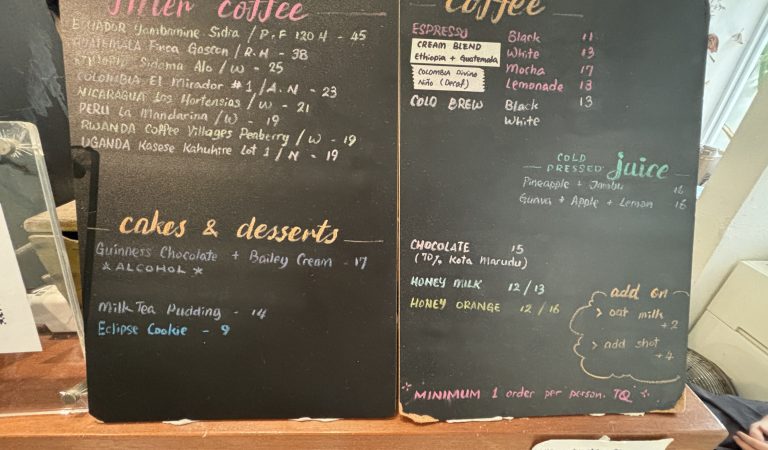 filter coffee
ECUADOR Jambonine Sidra / P.F 120H - 45
GUATEMALA Finca Gascon / R.H - 38
ETHIOPIA Sidama Alo / W - 25
COLOMBIA El Mirador #1 / A.N - 23
NICARAGUA Los Hortensias / W - 21
PERU La Mandarina / W - 19
RWANDA Coffee Villages Peaberry / W - 19
UGANDA Kasese Kahuhire Lot 1 / N - 19
cakes & desserts
Guinness Chocolate + Bailey Cream - 17
*ALCOHOL*
Milk Tea Pudding - 14
Eclipse Cookie - 9
coffee
ESPRESSO Black 11
CREAM BLEND
Ethiopia + Guatemala
White 13
Mocha 17
COLOMBIA Divino
Niño (Decaf)
Lemonade 13
COLD BREW Black 13
White
COLD PRESSED juice
Pineapple + Jambu 16
Guava + Apple + Lemon 16
CHOCOLATE 15
(70% Kota Marudu)
HONEY MILK 12 / 13
HONEY ORANGE 12 / 16
add on
> oat milk
+2
> add shot
+4
MINIMUM 1 order per person. TQ